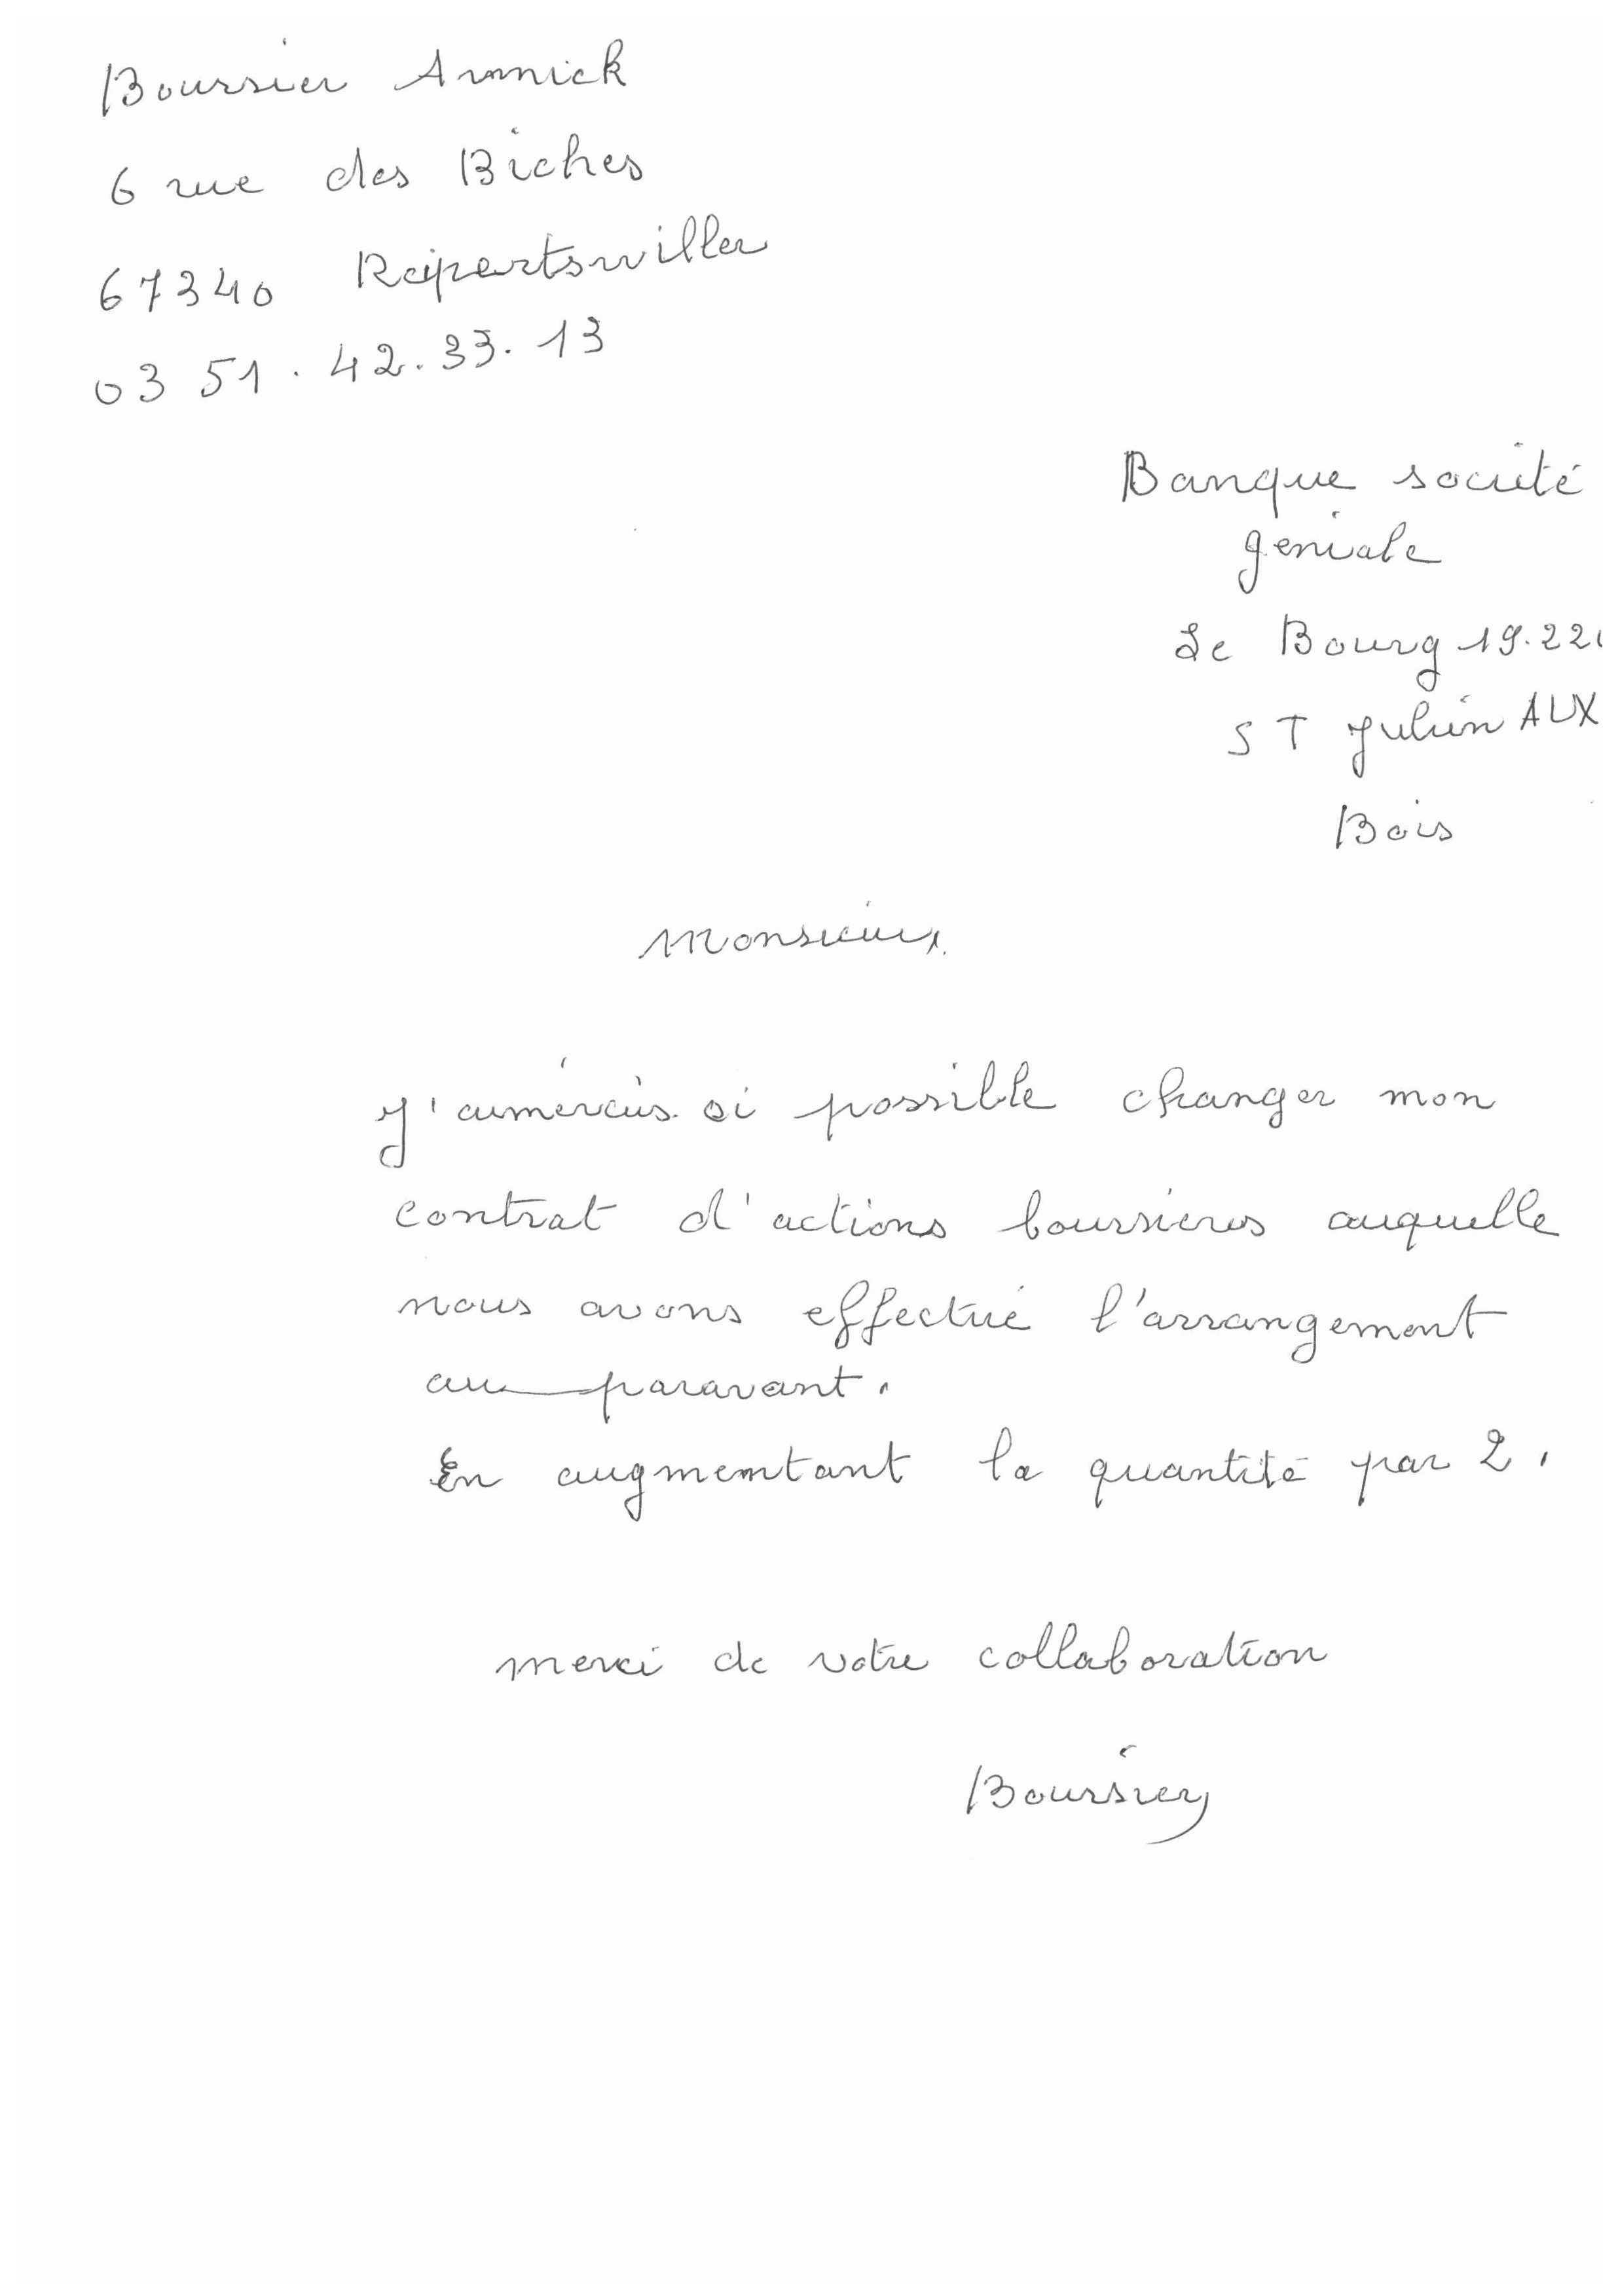 Boursier Annick
6 rue des Biches
67340 Reipertswiller
03 51.42.33.13
Banque société
geniale
Le Bourg 19.220
ST Julien AUX
Bois
Monsieur,
J'aimerais si possible changer mon
contrat d'actions boursieres auquelle
nous avons effectué l'arrangement
au paravant.
En augmentant la quantité par 2.
merci de votre collaboration
Boursier